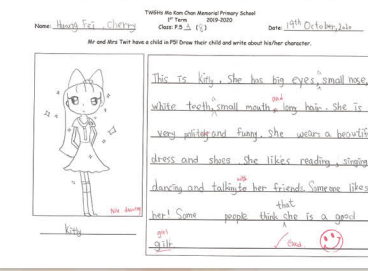 TWGHs Ma Kam Chan Memorial Primary School
1st Term 2019-2020
Name: Huang Fei, Cherry Class: P.5 A (8) Date: 19th October, 2020
Mr and Mrs Twit have a child in P5! Draw their child and write about his/her character.
This is kitty. She has big eyes, small nose,
white teeth, small mouth and long hair. She is
very polite and funny. She wears a beautif
dress and shoes. She likes reading, singing
dancing and talking to with her friends. Someone likes
her! Some people think that she is a good
girl
gilr.
Good
Nice drawing
kitty